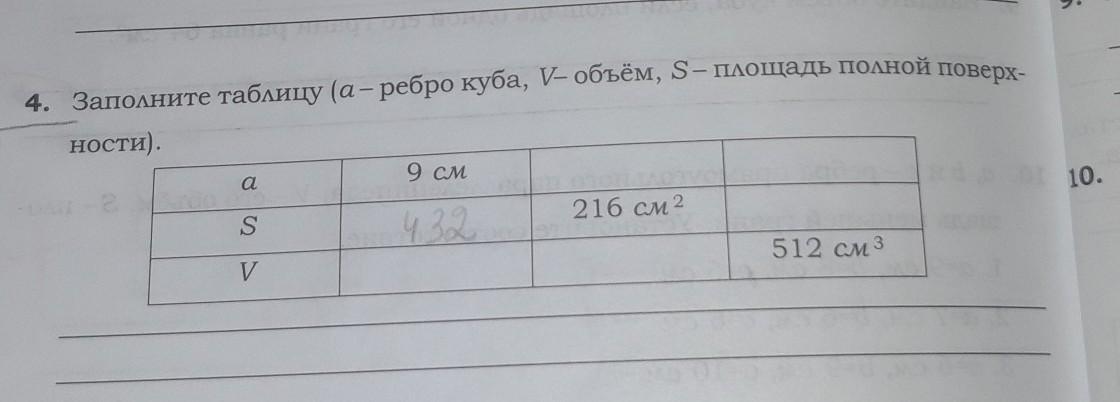 4. Заполните таблицу (a – ребро куба, V– объём, S – площадь полной поверх-
ности).
a 9 см
S 432 216 см²
V 512 см³
10.